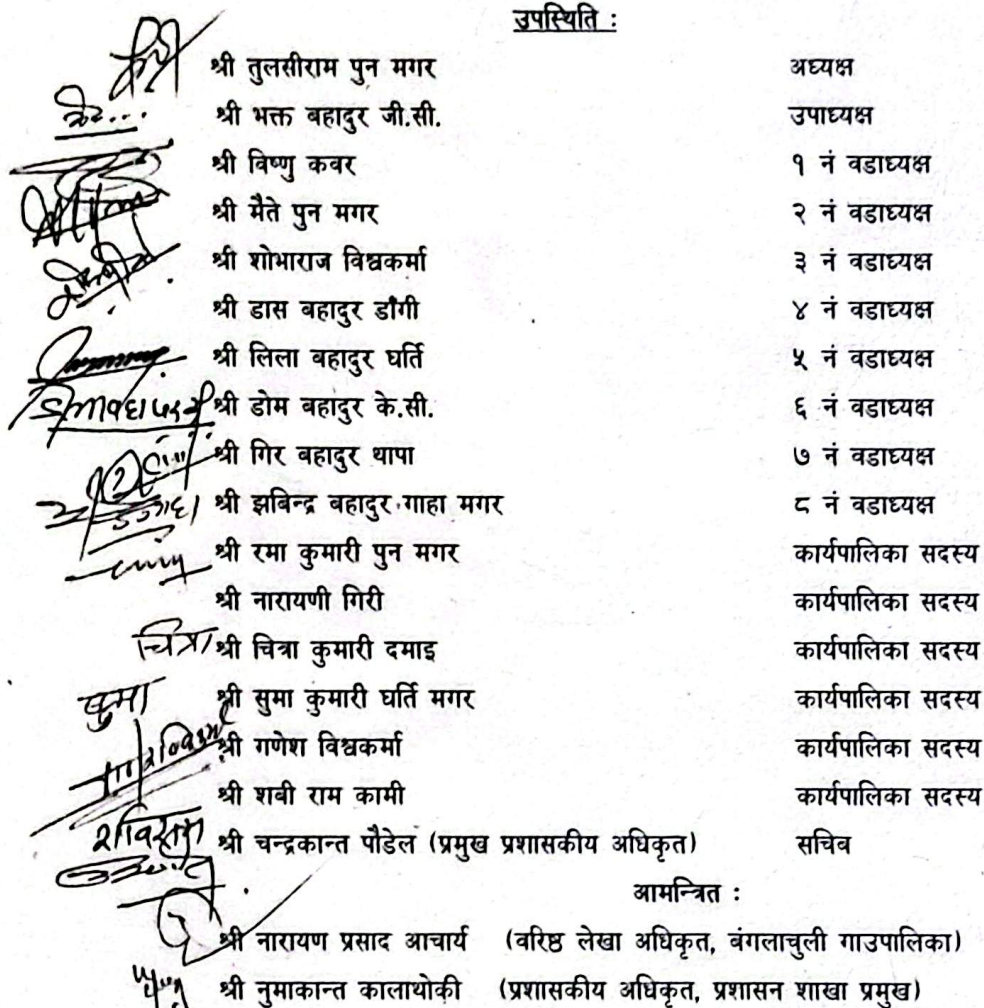 उपस्थिति :
श्री तुलसीराम पुन मगर अध्यक्ष
श्री भक्त बहादुर जी.सी. उपाध्यक्ष
श्री विष्णु कवर १ नं वडाध्यक्ष
श्री मैते पुन मगर २ नं वडाध्यक्ष
श्री शोभाराज विश्वकर्मा ३ नं वडाध्यक्ष
श्री डास बहादुर डाँगी ४ नं वडाध्यक्ष
श्री लिला बहादुर घर्ति ५ नं वडाध्यक्ष
श्री डोम बहादुर के.सी. ६ नं वडाध्यक्ष
श्री गिर बहादुर थापा ७ नं वडाध्यक्ष
श्री झबिन्द्र बहादुर गाहा मगर ८ नं वडाध्यक्ष
श्री रमा कुमारी पुन मगर कार्यपालिका सदस्य
श्री नारायणी गिरी कार्यपालिका सदस्य
चित्रा श्री चित्रा कुमारी दमाइ कार्यपालिका सदस्य
सुमा श्री सुमा कुमारी घर्ति मगर कार्यपालिका सदस्य
श्री गणेश विश्वकर्मा कार्यपालिका सदस्य
श्री शबी राम कामी कार्यपालिका सदस्य
श्री चन्द्रकान्त पौडेल (प्रमुख प्रशासकीय अधिकृत) सचिव
आमन्त्रित :
श्री नारायण प्रसाद आचार्य (वरिष्ठ लेखा अधिकृत, बंगलाचुली गाउपालिका)
श्री नुमाकान्त कालाथोकी (प्रशासकीय अधिकृत, प्रशासन शाखा प्रमुख)